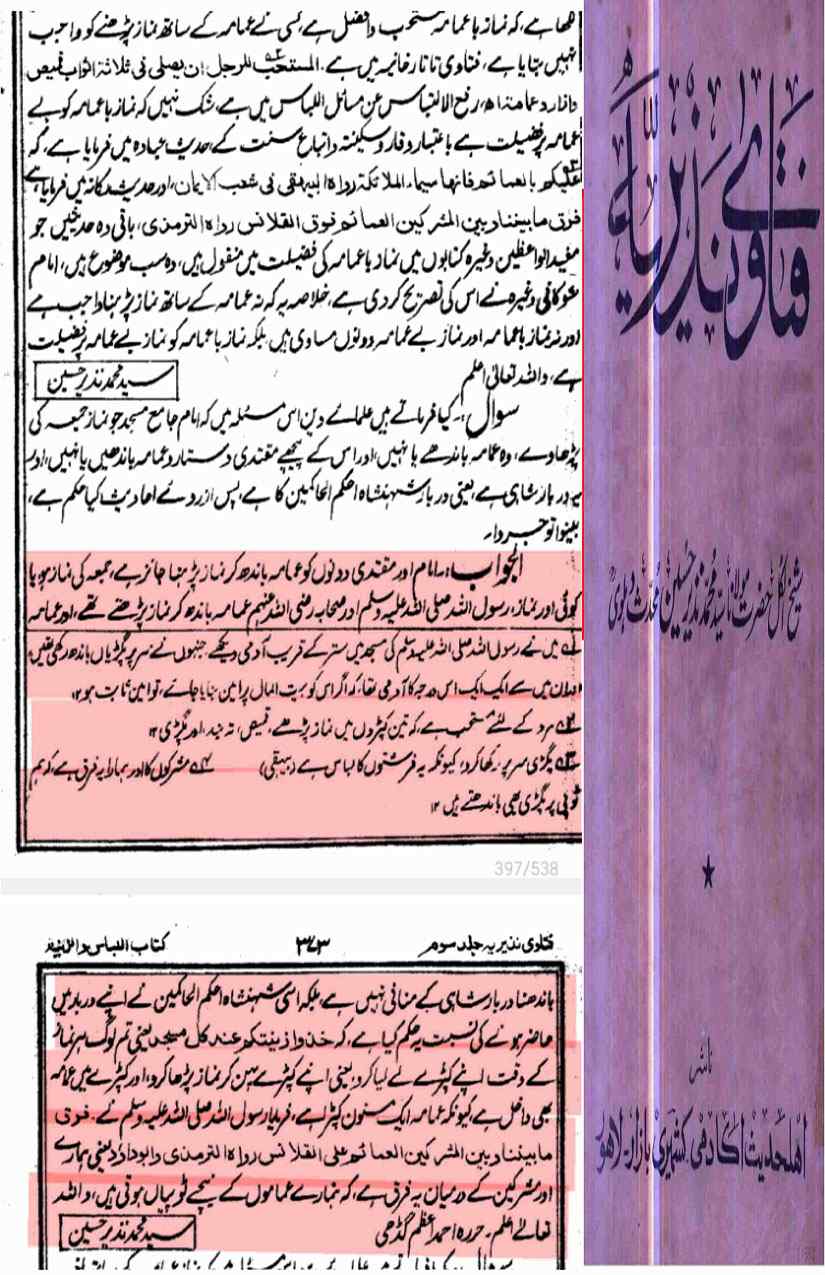 لکھا ہے، کہ نماز با عمامہ مستحب و افضل ہے، کسی نے عمامہ کے ساتھ نماز پڑھنے کو واجب
نہیں بتایا ہے، فتاوی تاتارخانیہ میں ہے، المستحب للرجل ان یصلی فی ثلاثۃ اثواب قمیص
وازار وعمامۃ اھ، رفع الالتباس عن مسائل اللباس میں ہے، شک نہیں کہ نماز با عمامہ کو بے
عمامہ پر فضیلت ہے باعتبار وقار و سکینتہ و اتباع سنت کے، حدیث عبادہ میں فرمایا ہے، کہ
علیکم بالعمائم فانھا سیماء الملائکۃ رواہ البیہقی فی شعب الایمان، اور حدیث رکانہ میں فرمایا ہے
فرق ما بیننا و بین المشرکین العمائم فوق القلانس رواہ الترمذی، باقی وہ حدیثیں جو
مفید الواعظین وغیرہ کتابوں میں نماز با عمامہ کی فضیلت میں منقول ہیں، وہ سب موضوع ہیں، امام
شوکانی وغیرہ نے اس کی تصریح کر دی ہے، خلاصہ یہ کہ نہ عمامہ کے ساتھ نماز پڑہنا واجب ہے
اور نہ نماز با عمامہ اور نماز بے عمامہ دونوں مساوی ہیں، بلکہ نماز با عمامہ کو نماز بے عمامہ پر فضیلت
ہے، واللہ تعالیٰ اعلم
سید محمد نذیر حسین
سوال:۔ کیا فرماتے ہیں علمائے دین اس مسئلہ میں کہ امام جامع مسجد جو نماز جمعہ کی
پڑھاوے، وہ عمامہ باندھے یا نہیں، اور اس کے پیچھے مقتدی دستار و عمامہ باندھیں یا نہیں، اور
یہ دربار شاہی ہے، یعنی دربار شہنشاہ احکم الحاکمین کا ہے، پس ازروئے احادیث کیا حکم ہے،
بینوا توجروا۔
الجواب:۔ امام اور مقتدی دونوں کو عمامہ باندھ کر نماز پڑہنا جائز ہے، جمعہ کی نماز ہو یا
کوئی اور نماز، رسول اللہ صلی اللہ علیہ وسلم اور صحابہ رضی اللہ عنہم عمامہ باندھ کر نماز پڑھتے تھے، اور عمامہ
۱؎ میں نے رسول اللہ صلی اللہ علیہ وسلم کی مسجد میں ستر کے قریب آدمی دیکھے، جنہوں نے سر پر پگڑیاں باندھ رکھی تھیں،
اور ان میں سے ایک ایک اس درجہ کا آدمی تھا، کہ اگر اس کو بیت المال پر امین بنایا جائے، تو امین ثابت ہو ۱۲
۲؎ مرد کے لئے مستحب ہے، کہ تین کپڑوں میں نماز پڑھے، قمیص، تہ بند، اور پگڑی ۱۲
۳؎ پگڑی سر پر رکھا کرو، کیونکہ یہ فرشتوں کا لباس ہے (بیہقی) ۴؎ مشرکوں کا اور ہمارا یہ فرق ہے، کہ ہم
ٹوپی پر پگڑی بھی باندھتے ہیں ۱۲
397/538
فتاوی نذیریہ جلد سوم ۳۷۳ کتاب اللباس والزینۃ
باندھنا دربار شاہی کے منافی نہیں ہے، بلکہ اسی شہنشاہ احکم الحاکمین نے اپنے دربار میں
حاضر ہونے کی نسبت یہ حکم کیا ہے، کہ خذوا زینتکم عند کل مسجد یعنی تم لوگ ہر نماز
کے وقت اپنے کپڑے لے لیا کرو، یعنی اپنے کپڑے پہن کر نماز پڑھا کرو، اور کپڑے میں عمامہ
بھی داخل ہے، کیونکہ عمامہ ایک مسنون کپڑا ہے، فرمایا رسول اللہ صلی اللہ علیہ وسلم نے۔ فرق
ما بیننا وبین المشرکین العمائم علی القلانس رواہ الترمذی وابوداؤد یعنی ہمارے
اور مشرکین کے درمیان یہ فرق ہے، کہ ہمارے عماموں کے نیچے ٹوپیاں ہوتی ہیں، واللہ
تعالےٰ اعلم۔ حررہ احمد اعظم گڈھی
سید محمد نذیر حسین
فتاوی نذیریہ
شیخ الکل حضرت مولانا سید محمد نذیر حسین محدث دہلوی
ناشر
اھلحدیث اکادمی۔ کشمیری بازار۔ لاہور